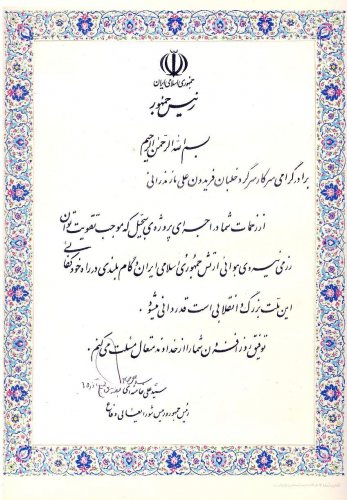 جمهوری اسلامی ایران
رئیس جمهور
بسم الله الرحمن الرحیم
برادر گرامی سرکار سرگرد خلبان فریدون علی مازندرانی
از زحمات شما در اجرای پروژه سجیل که موجب تقویت توان
رزمی نیروی هوائی ارتش جمهوری اسلامی ایران و گام بلندی در راه خودکفائی
این ملت بزرگ و انقلابی است قدردانی میشود
توفیق روز افزون شما را از خداوند متعال مسئلت می کنم.
سید علی خامنه ای
رئیس جمهور و رئیس شورایعالی دفاع